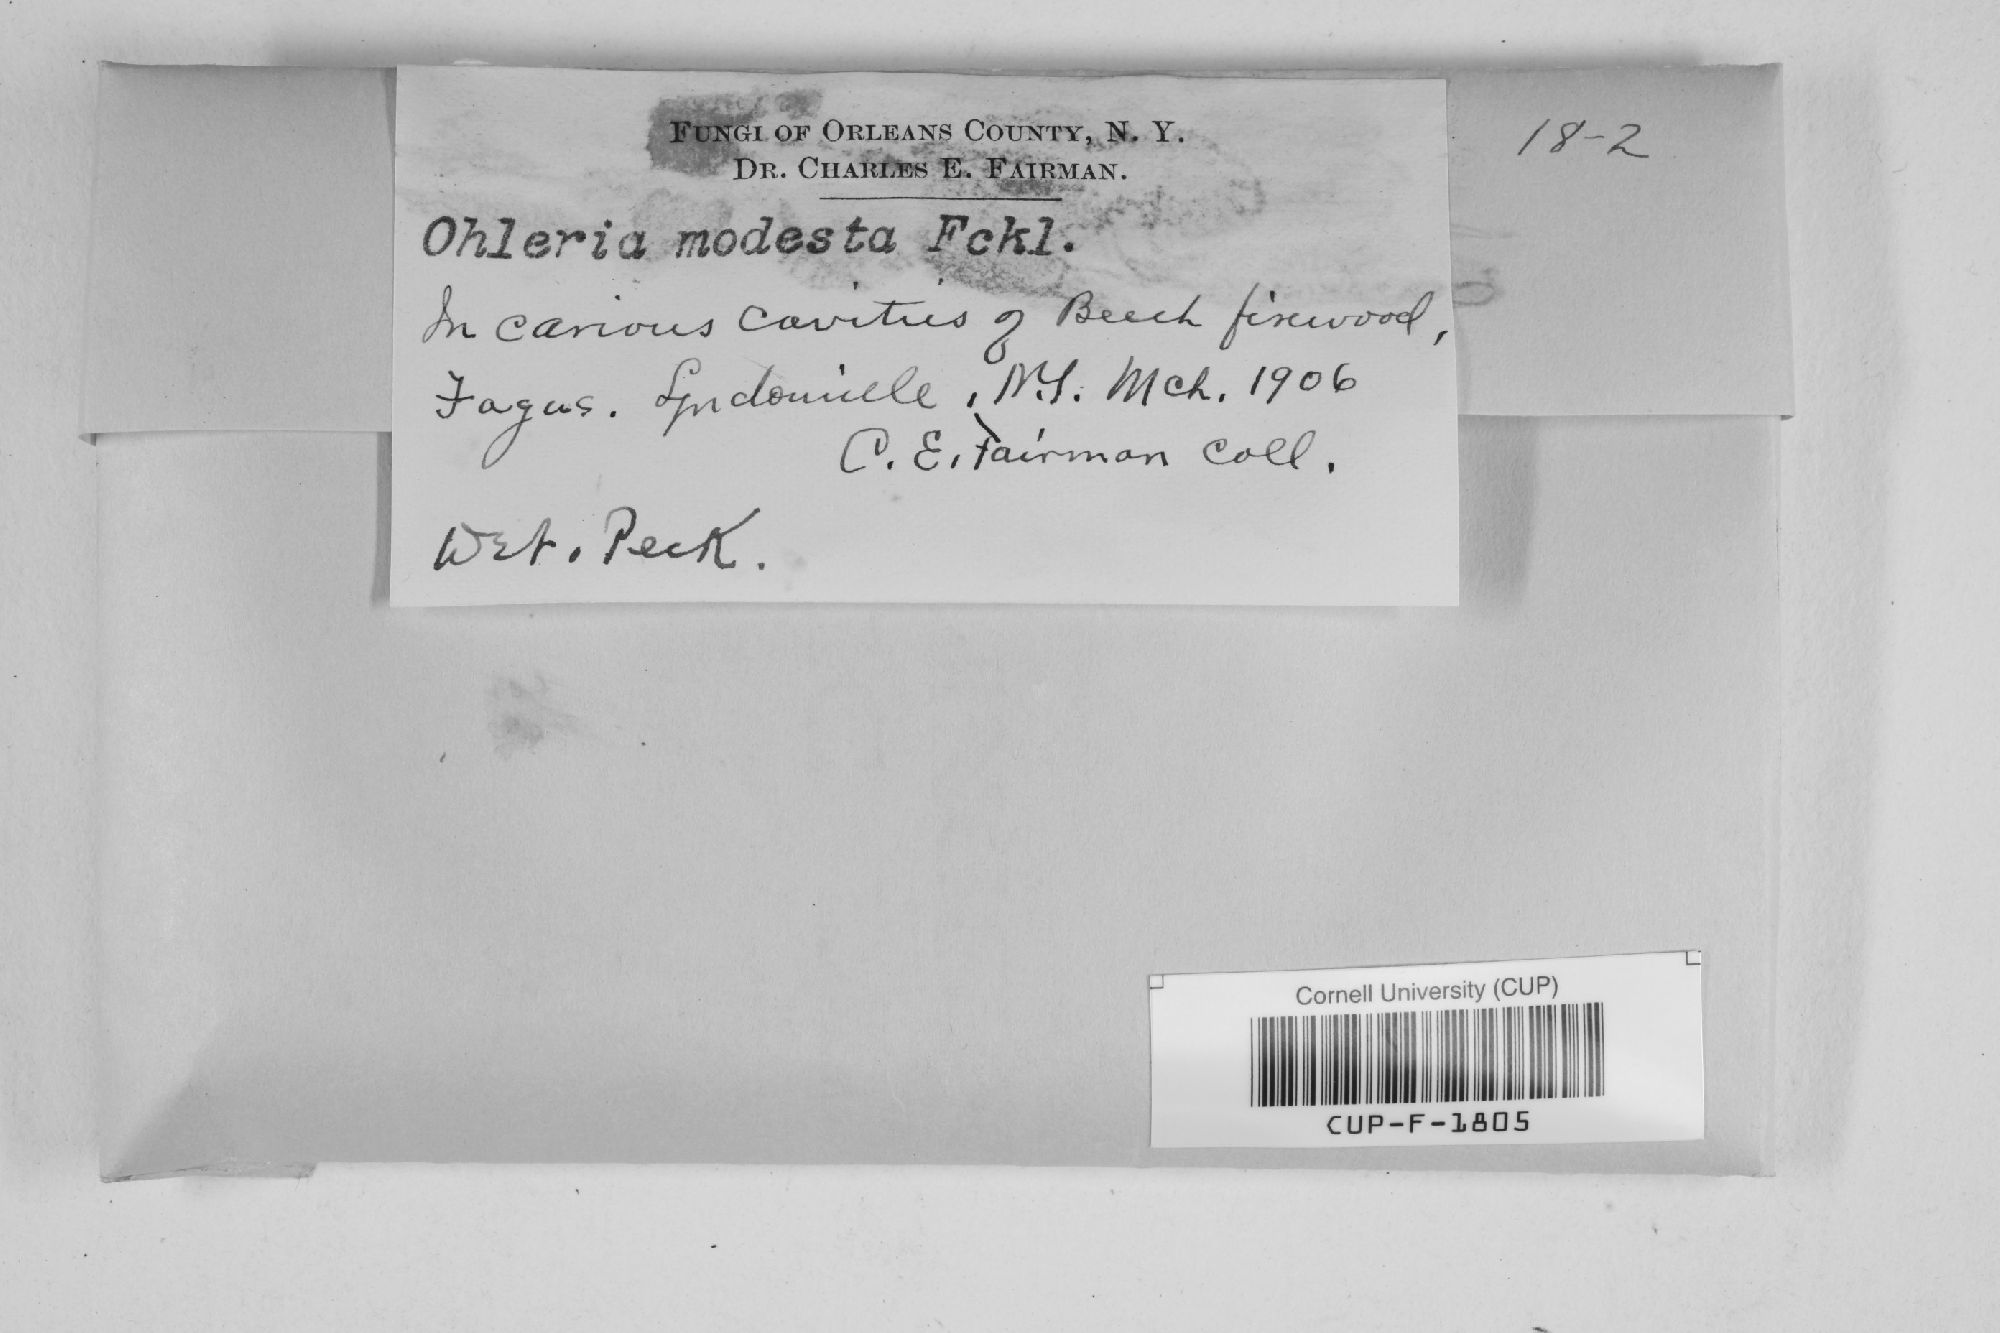 FUNGI OF ORLEANS COUNTY, N. Y.
DR. CHARLES E. FAIRMAN.
18-2
Ohleria modesta Fckl.
In carious cavities of Beech firewood,
Fagus. Lyndonville, N.Y. Mch. 1906
C. E. Fairman coll.
Det. Peck.
Cornell University (CUP)
CUP-F-1805